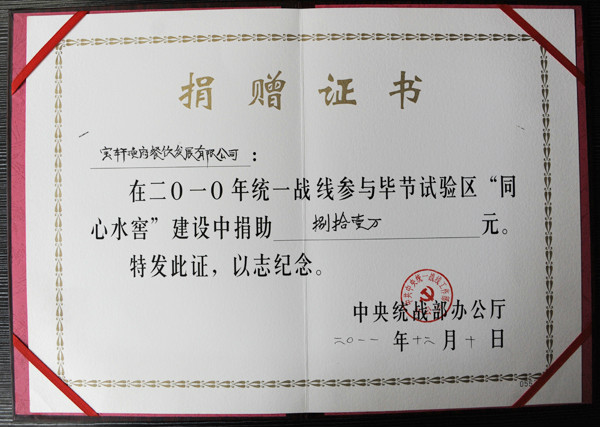 捐赠证书
宝轩渔府餐饮发展有限公司：
在二〇一〇年统一战线参与毕节试验区“同
心水窖”建设中捐助捌拾壹万元。
特发此证，以志纪念。
中央统战部办公厅
二〇一一年十二月十日